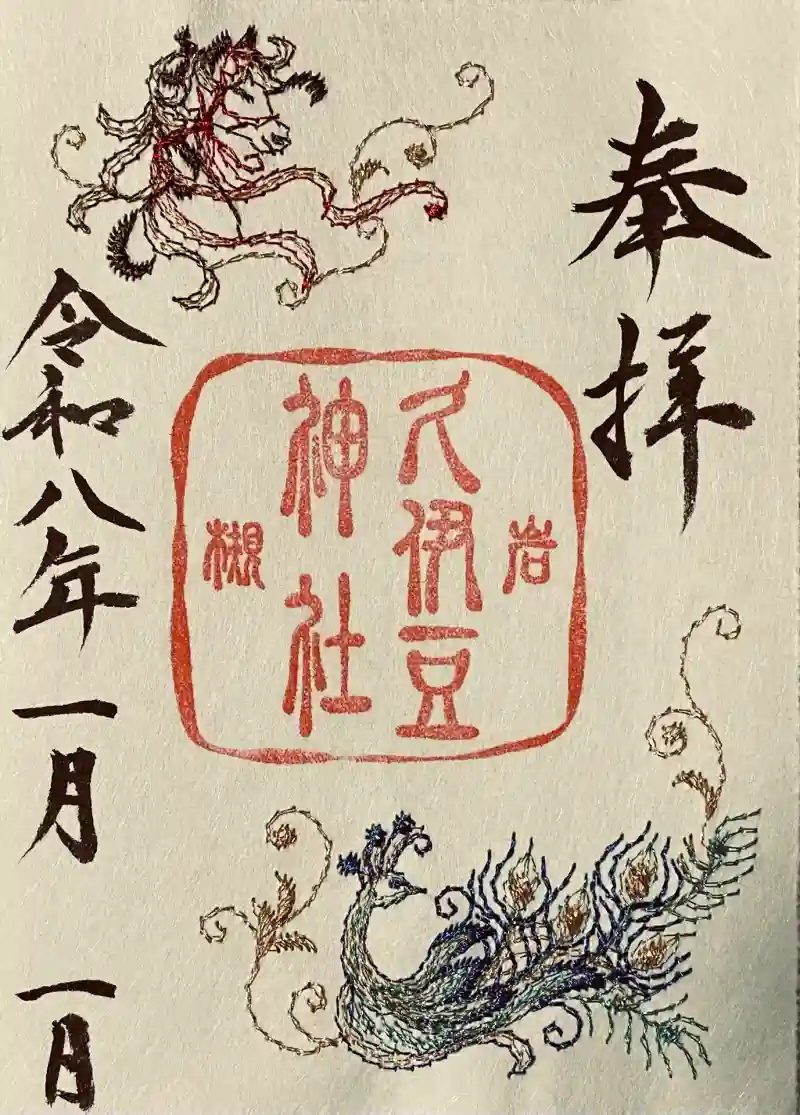 奉拝
岩
久伊豆
神社
槻
令和八年一月一日